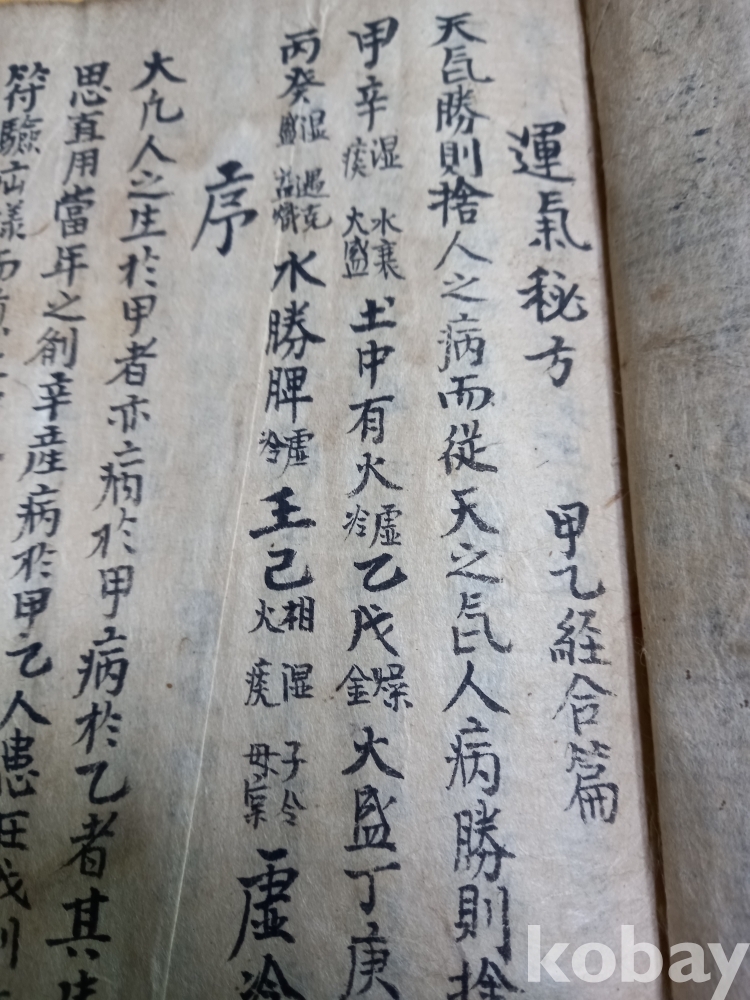 運氣秘方 甲乙経合篇
天氏勝則捨人之病而従天之氏人病勝則捨
甲辛 湿痰 水襄大盛 土中有火 虚冷 乙戊 燥金 火盛丁庚
丙癸 湿盛 遇克 水勝脾 虚冷 王己 相火 湿痰 子令母 虚冷
序
大凡人之生於甲者亦病於甲病於乙者其生
思直用當年之剣辛産病於甲乙人患在戊則
符驗 様而
kobay